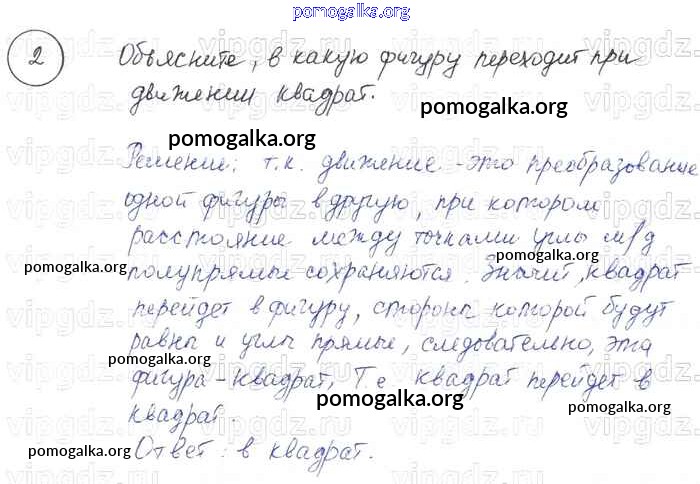 pomogalka.org
2 Объясните, в какую фигуру переходит при
движении квадрат.
pomogalka.org
pomogalka.org
Решение: т.к. движение - это преобразование
одной фигуры в другую, при котором
расстояние между точками углы м/д
pomogalka.org
полупрямые сохраняются. Значит, квадрат
pomogalka.org
перейдет в фигуру, стороны которой будут
равны и углы прямые, следовательно, эта
pomogalka.org
фигура - квадрат, Т.е. квадрат перейдет в
pomogalka.org
pomogalka.org
квадрат.
Ответ: в квадрат.
pomogalka.org